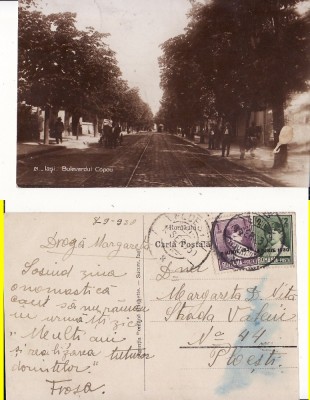 Iași. Bulevardul Copou
7-9-930
Dragă Margareta
Sosind ziua
onomastică
caut să nu rămân
în urmă și zic
"Mulți ani
și realizarea tuturor
dorințelor"
Froșa.
România
Carte Poștală
D-nei
Margareta D. Nita
Strada Văleni
No 44
Ploești.